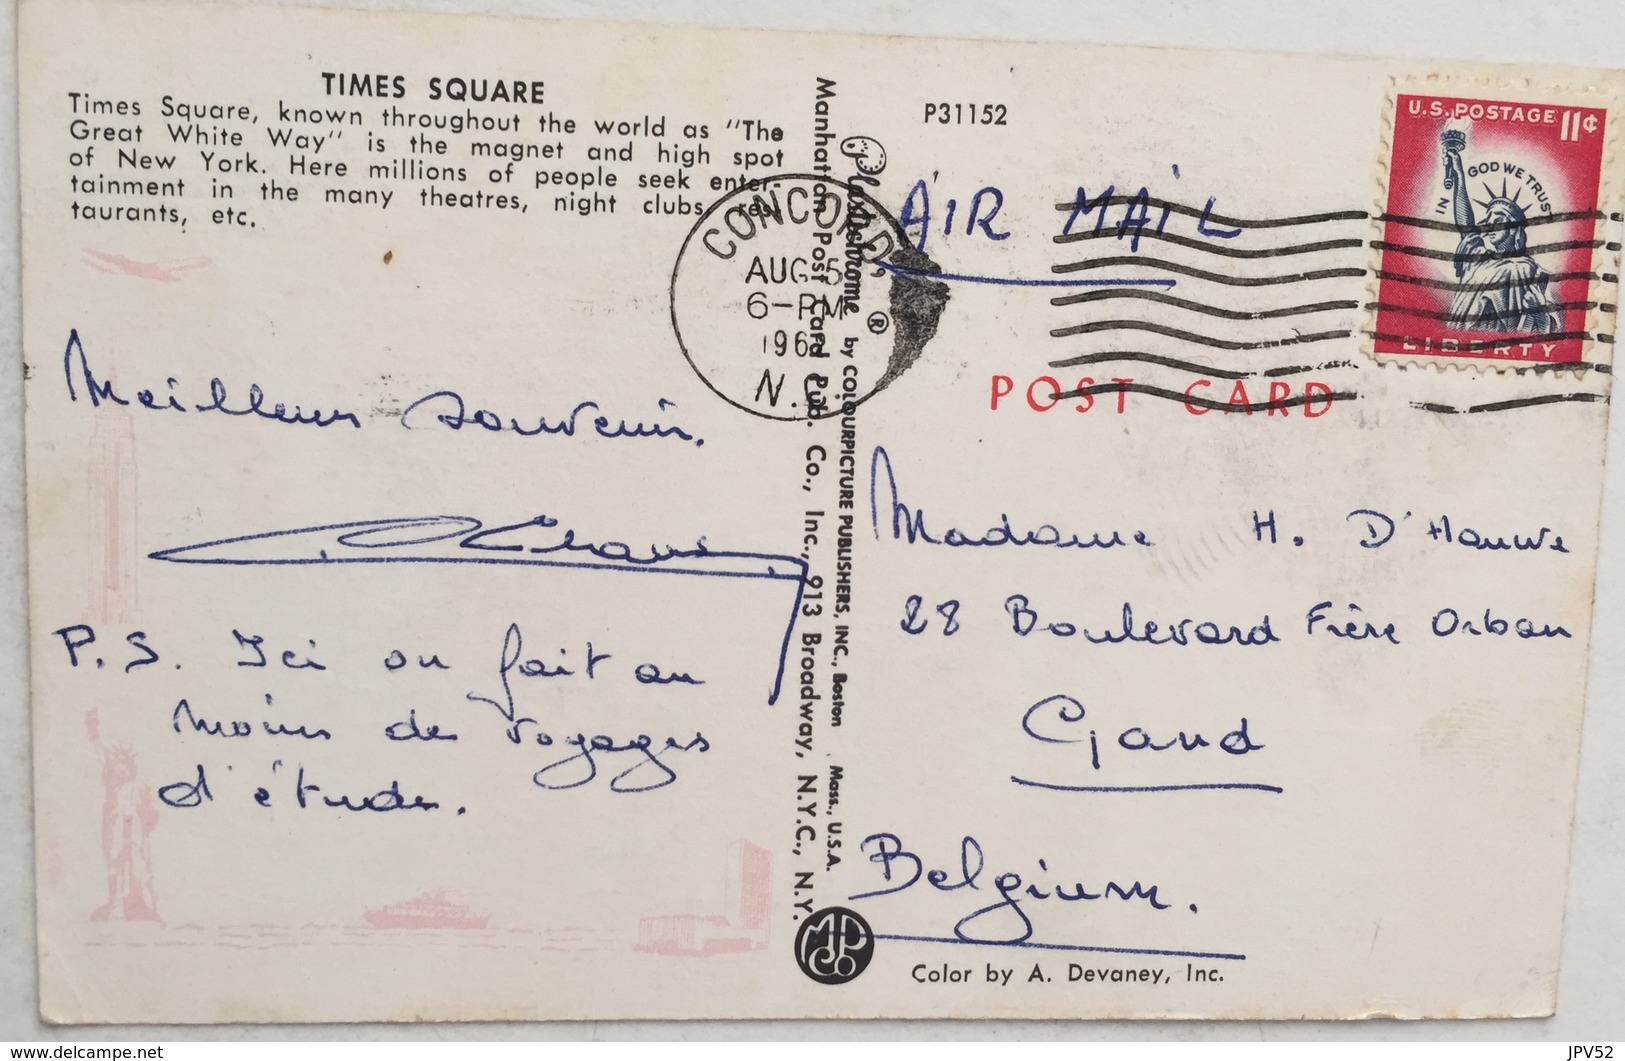 TIMES SQUARE
Times Square, known throughout the world as "The
Great White Way" is the magnet and high spot
of New York. Here millions of people seek enter-
tainment in the many theatres, night clubs, res-
taurants, etc.
Meilleur souvenir.
P.S. Ici on fait au
moins de voyages
d'étude.
CONCORD,
AUG 5
6-PM
196
N.
Manhattan Post Card Pub. Co., Inc., 913 Broadway, N.Y.C., N.Y.
Plastichrome ® by COLOURPICTURE PUBLISHERS, INC., Boston Mass., U.S.A.
P31152
AIR MAIL
U.S. POSTAGE 11¢
IN GOD WE TRUST
LIBERTY
POST CARD
Madame H. D'Hauwe
28 Boulevard Frère Orban
Gand
Belgium.
MPCo
Color by A. Devaney, Inc.
delcampe.net
JPV52